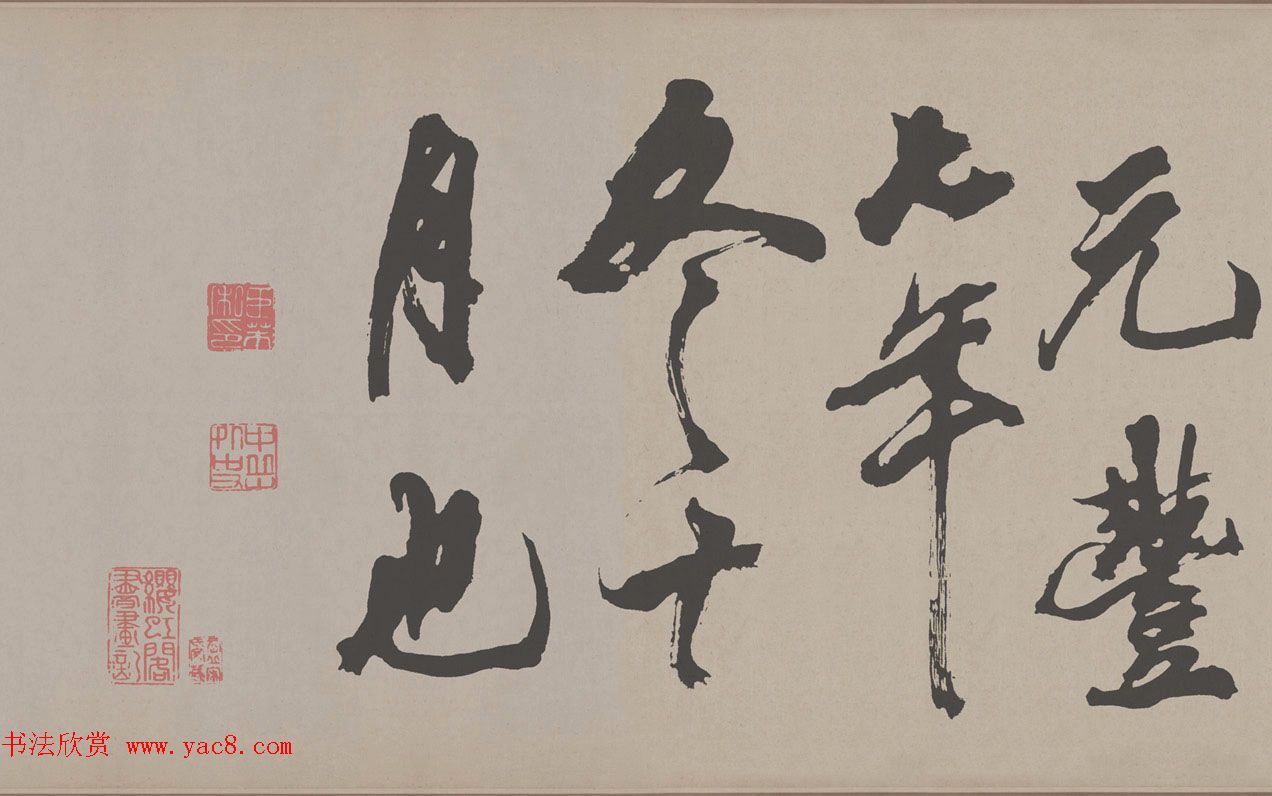 元豐
七年
冬十
月也
书法欣赏 www.yac8.com